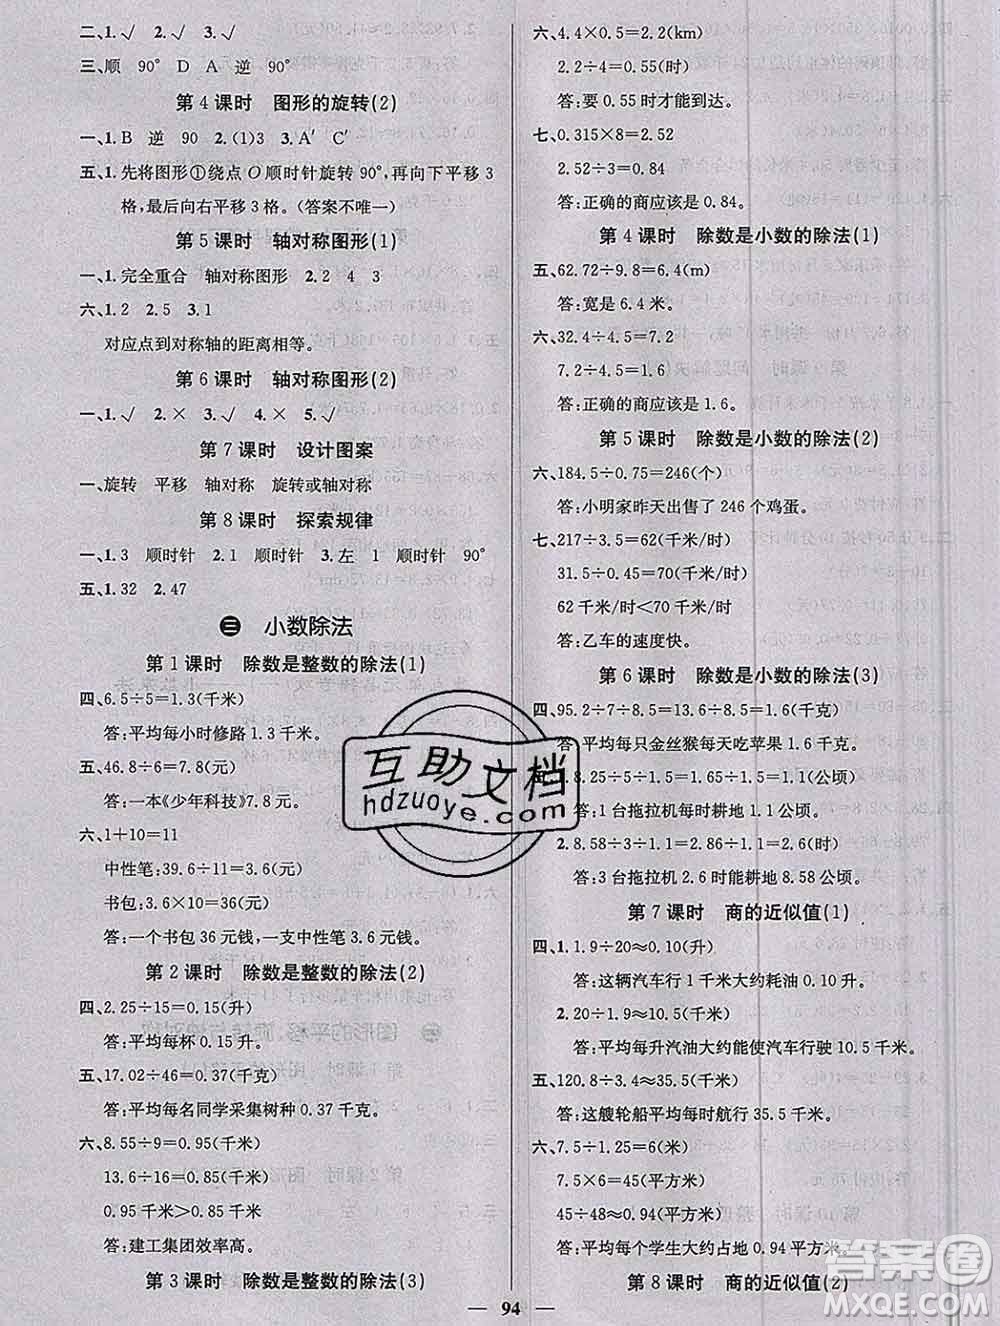 二、1.√ 2.√ 3.√
三、顺 90° D A 逆 90°
第4课时 图形的旋转(2)
一、1.B 逆 90 2.(1)3 3.A′ C′
五、1.先将图形①绕点O顺时针旋转90°,再向下平移3
格,最后向右平移3格。(答案不唯一)
第5课时 轴对称图形(1)
一、1.完全重合 轴对称图形 2.2 4 3
六、1.2 2.5 3.1
对应点到对称轴的距离相等。
第6课时 轴对称图形(2)
一、1.√ 2.× 3.√ 4.× 5.√
第7课时 设计图案
一、旋转 平移 轴对称 旋转或轴对称
第8课时 探索规律
一、1.3 顺时针 2.1 顺时针 3.左 1 顺时针 90°
五、1.32 2.47
三 小数除法
第1课时 除数是整数的除法(1)
四、6.5÷5=1.3(千米)
答:平均每小时修路1.3千米。
五、46.8÷6=7.8(元)
答:一本《少年科技》7.8元。
六、1+10=11
中性笔:39.6÷11=3.6(元)
书包:3.6×10=36(元)
答:一个书包36元钱,一支中性笔3.6元钱。
第2课时 除数是整数的除法(2)
四、2.25÷15=0.15(升)
答:平均每杯0.15升。
五、17.02÷46=0.37(千克)
答:平均每名同学采集树种0.37千克。
六、8.55÷9=0.95(千米)
13.6÷16=0.85(千米)
0.95千米>0.85千米
答:建工集团效率高。
第3课时 除数是整数的除法(3)
六、4.4×0.5=2.2(km)
2.2÷4=0.55(时)
答:要0.55时才能到达。
七、0.315×8=2.52
2.52÷3=0.84
答:正确的商应该是0.84。
第4课时 除数是小数的除法(1)
五、62.72÷9.8=6.4(m)
答:宽是6.4米。
六、32.4÷4.5=7.2
7.2÷4.5=1.6
答:正确的商应该是1.6。
第5课时 除数是小数的除法(2)
六、184.5÷0.75=246(个)
答:小明家昨天出售了246个鸡蛋。
七、217÷3.5=62(千米/时)
31.5÷0.45=70(千米/时)
62千米/时<70千米/时
答:乙车的速度快。
第6课时 除数是小数的除法(3)
四、95.2÷7÷8.5=13.6÷8.5=1.6(千克)
答:平均每只金丝猴每天吃苹果1.6千克。
五、1.8.25÷5÷1.5=1.65÷1.5=1.1(公顷)
答:1台拖拉机每时耕地1.1公顷。
2.8.58÷1.1÷3=7.8÷3=2.6(时)
答:3台拖拉机2.6时能耕地8.58公顷。
第7课时 商的近似值(1)
四、1.1.9÷20≈0.10(升)
答:这辆汽车行1千米大约耗油0.10升。
2.20÷1.9≈10.5(千米)
答:平均每升汽油大约能使汽车行驶10.5千米。
五、120.8÷3.4≈35.5(千米)
答:这艘轮船平均每时航行35.5千米。
六、7.5÷1.25=6(米)
7.5×6=45(平方米)
45÷48≈0.94(平方米)
答:平均每个学生大约占地0.94平方米。
第8课时 商的近似值(2)
互助文档
hdzuoye.com
答案圈
MXQE.COM
94